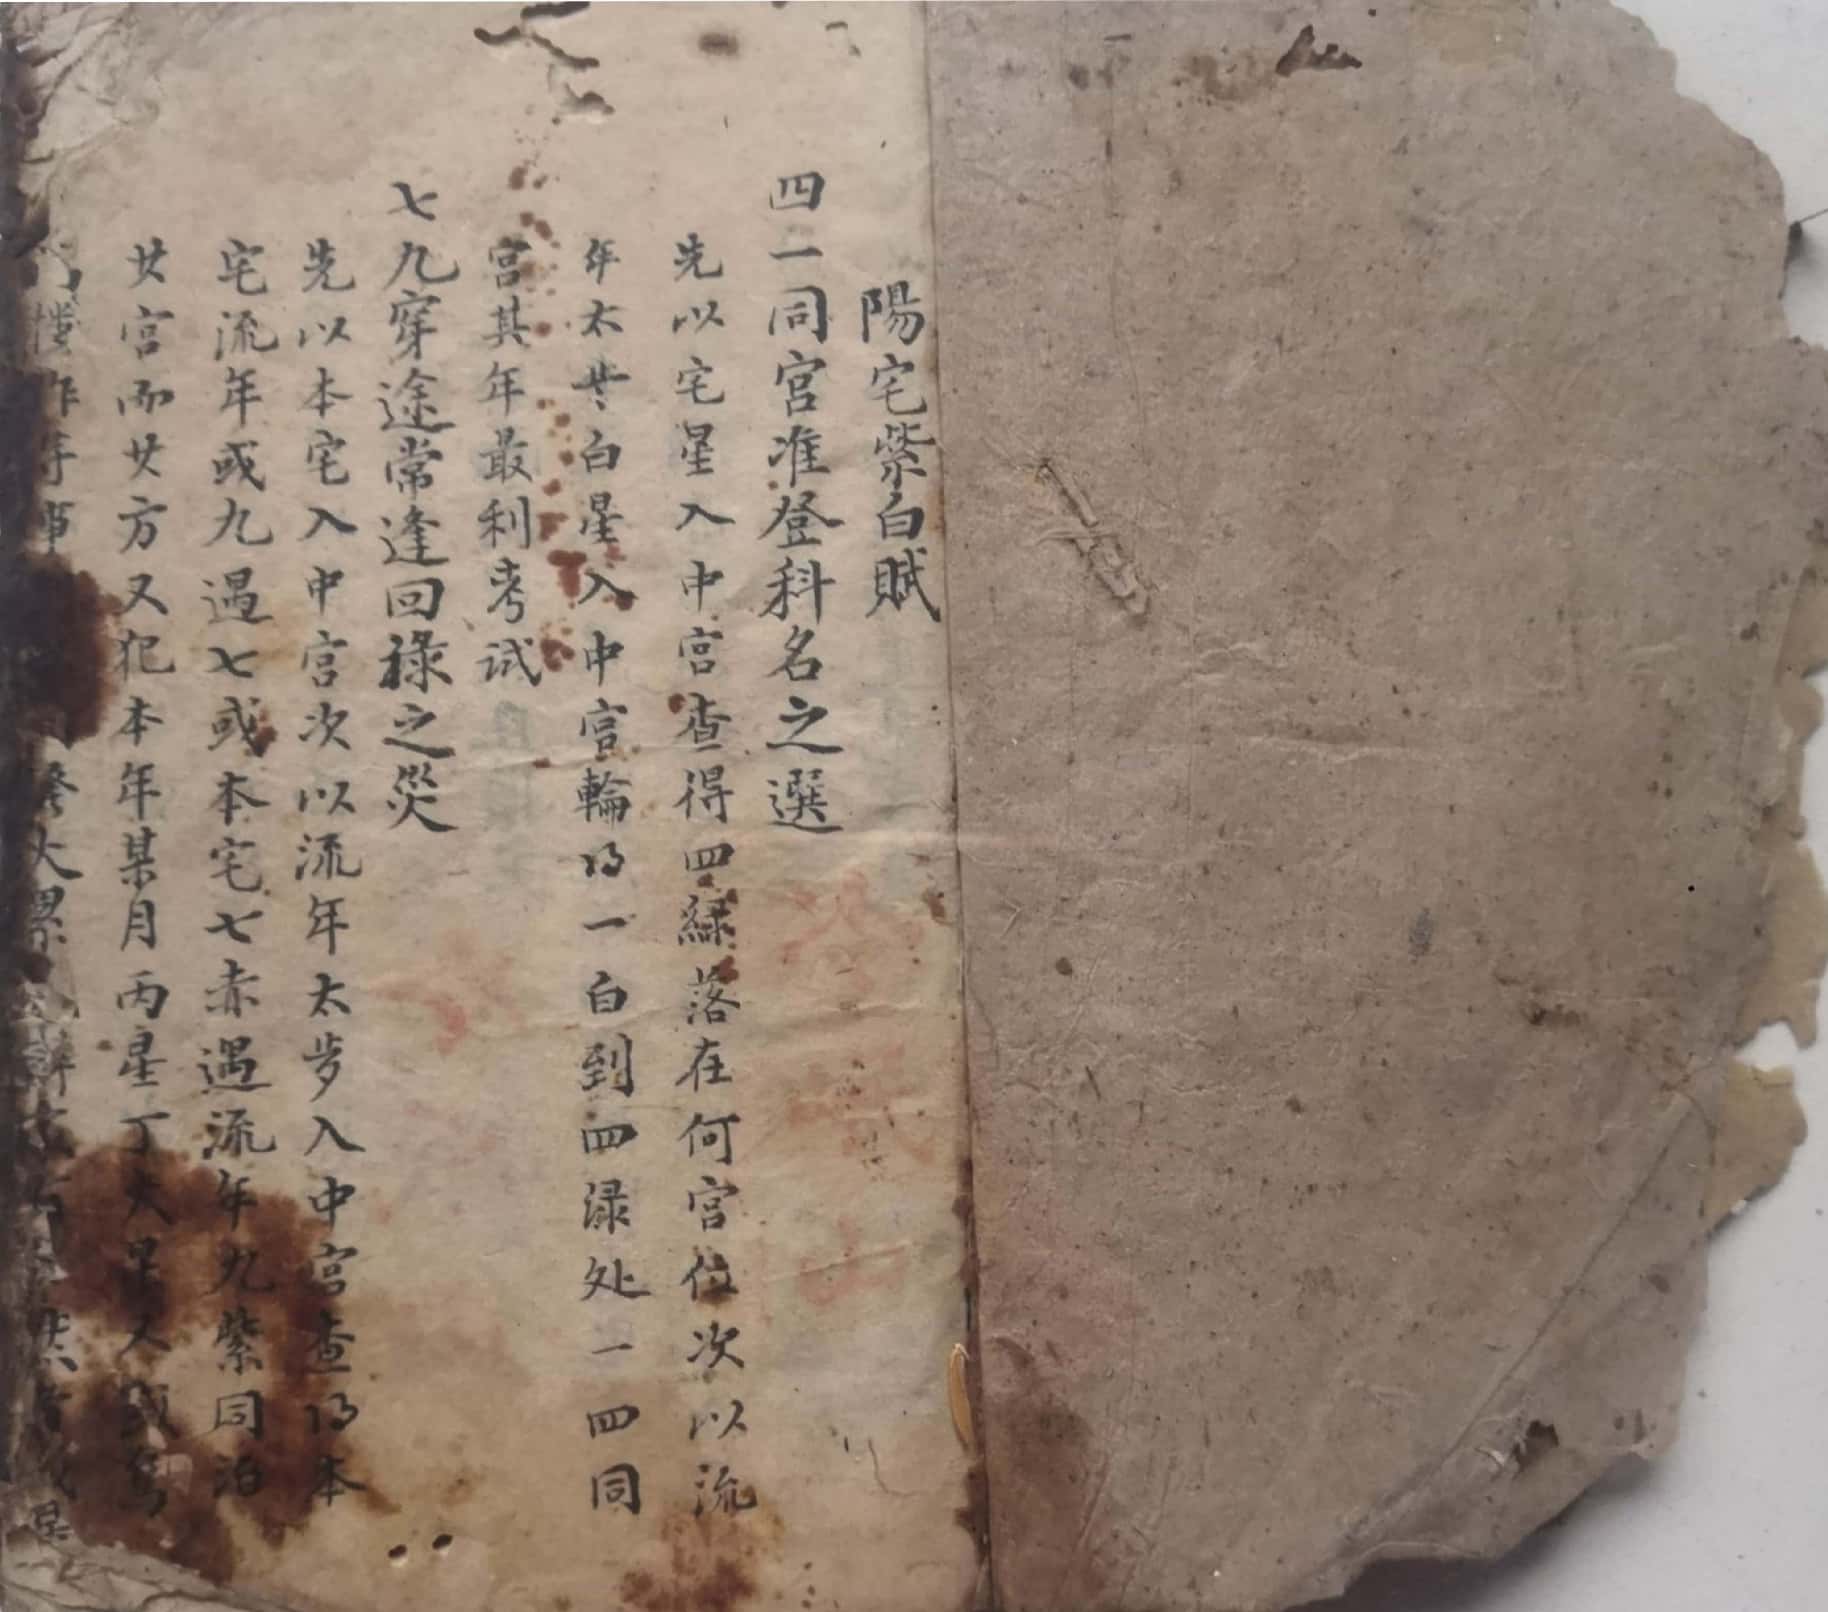 陽宅紫白賦
四一同宫准登科名之選
先以宅星入中宫查得四綠落在何宫位次以流
年太岁白星入中宫輪得一白到四渌处一四同
宫其年最利考试
七九穿途常逢回祿之災
先以本宅入中宫次以流年太步入中宫查得本
宅流年或九遇七或本宅七赤遇流年九紫同泊
廿宫而廿方又犯本年某月丙星丁火星
大累